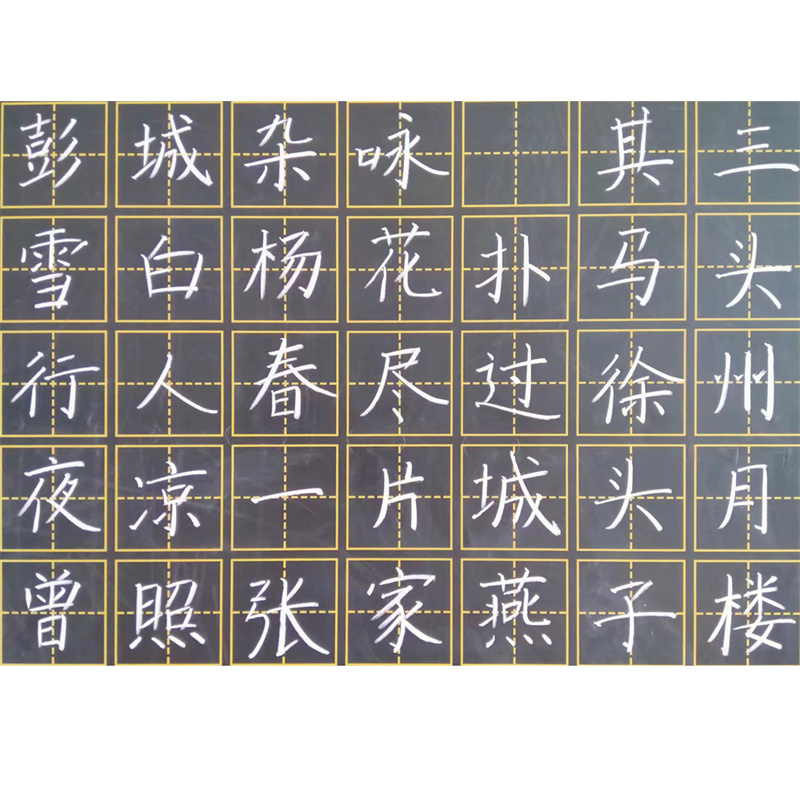 彭城杂咏 其三
雪白杨花扑马头
行人春尽过徐州
夜凉一片城头月
曾照张家燕子楼